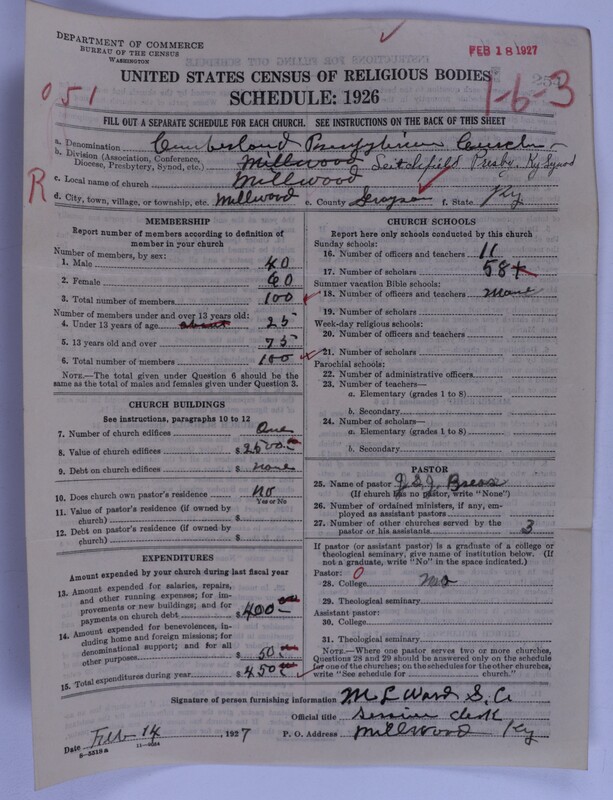 DEPARTMENT OF COMMERCE
BUREAU OF THE CENSUS
WASHINGTON
FEB 18 1927
UNITED STATES CENSUS OF RELIGIOUS BODIES
SCHEDULE: 1926
051
1-6-3
R
FILL OUT A SEPARATE SCHEDULE FOR EACH CHURCH. SEE INSTRUCTIONS ON THE BACK OF THIS SHEET
a. Denomination Cumberland Presbyterian Church
b. Division (Association, Conference, Diocese, Presbytery, Synod, etc.) Millwood Leitchfield Presby. Ky Synod
c. Local name of church Millwood
d. City, town, village, or township, etc. Millwood e. County Grayson f. State Ky
MEMBERSHIP
Report number of members according to definition of member in your church
Number of members, by sex:
1. Male 40
2. Female 60
3. Total number of members 100
Number of members under and over 13 years old:
4. Under 13 years of age about 25
5. 13 years old and over 75
6. Total number of members 100
NOTE.—The total given under Question 6 should be the same as the total of males and females given under Question 3.
CHURCH BUILDINGS
See instructions, paragraphs 10 to 12
7. Number of church edifices One
8. Value of church edifices $ 2500
9. Debt on church edifices $ none
10. Does church own pastor's residence No
Yes or No
11. Value of pastor's residence (if owned by church) $
12. Debt on pastor's residence (if owned by church) $
EXPENDITURES
Amount expended by your church during last fiscal year
13. Amount expended for salaries, repairs, and other running expenses; for improvements or new buildings; and for payments on church debt $ 400
14. Amount expended for benevolences, including home and foreign missions; for denominational support; and for all other purposes $ 50
15. Total expenditures during year $ 450
CHURCH SCHOOLS
Report here only schools conducted by this church
Sunday schools:
16. Number of officers and teachers 11
17. Number of scholars 58
Summer vacation Bible schools:
18. Number of officers and teachers None
19. Number of scholars
Week-day religious schools:
20. Number of officers and teachers
21. Number of scholars
Parochial schools:
22. Number of administrative officers
23. Number of teachers—
a. Elementary (grades 1 to 8)
b. Secondary
24. Number of scholars—
a. Elementary (grades 1 to 8)
b. Secondary
PASTOR
25. Name of pastor
(If church has no pastor, write "None")
26. Number of ordained ministers, if any, employed as assistant pastors
27. Number of other churches served by the pastor or his assistants 3
If pastor (or assistant pastor) is a graduate of a college or theological seminary, give name of institution below. (If not a graduate, write "No" in the space indicated.)
Pastor: 0
28. College No
29. Theological seminary
Assistant pastor:
30. College
31. Theological seminary
NOTE.—Where one pastor serves two or more churches, Questions 28 and 29 should be answered only on the schedule for one of the churches; on the schedules for the other churches, write "See schedule for church."
Signature of person furnishing information M L Ward S. C
Official title Session clerk
Date Feb 14, 1927 P. O. Address Millwood Ky
8-2318 a